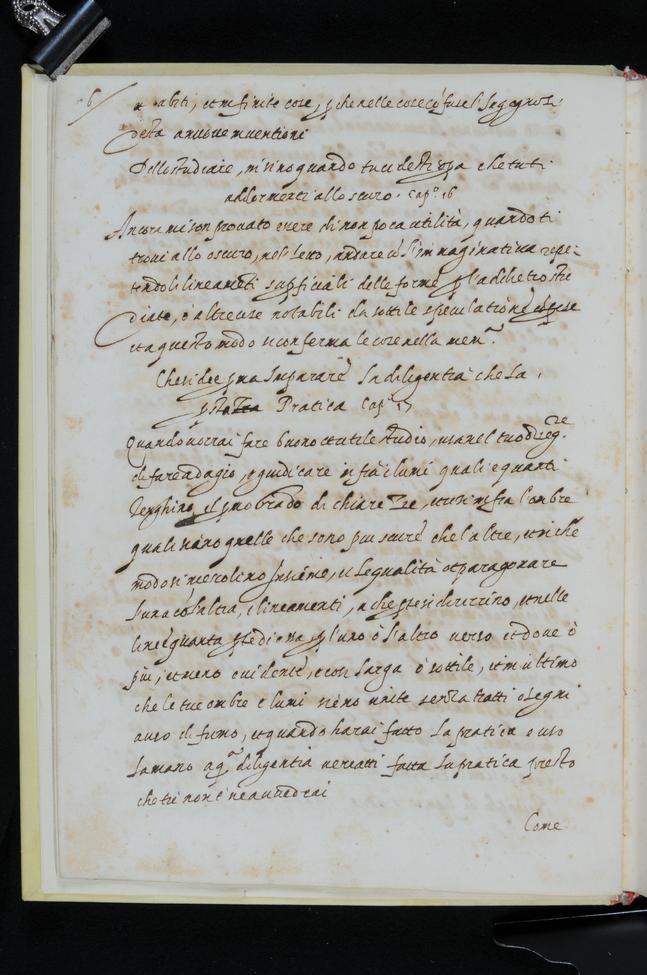 6
abiti, et infinite cose, p che nelle cose cōfuse l'Ingegno si
desta a nuove inventioni
Dello studiare, insino quando tu ti desti o pa che tu ti
addormenti allo scuro. Cap.º 16
Ancora mi son provato essere di non poca utilità, quando ti
trovi allo oscuro, nel letto, andare cō l'imaginativa repe-
tendo li lineamēti supficiali delle forme p l'adietro stu
diate, o altre cose notabili da sottile speculatione
et a questo modo si conferma le cose nella mem.ª
Che si dee pma Imparare la diligentia che la
Pratica Cap.º 17
Quando vorrai fare buono et utile studio, usa nel tuo diseg.re
di fare adagio, e giudicare infra i lumi quali e quanti
tenghino il pmo grado di chiarezze, et cosi infra l'ombre
quali siano quelle che sono piu scure che l'altre, et in che
modo si mescolino Insieme, e le qualità et paragonare
l'una cō l'altra, i lineamenti, a che pte si dirizzino, et nelle
linee quanta pte di essa p l'uno o l'altro verso et dove è
piu, et meno evidente, e cosi larga o sottile, et in ultimo
che le tue ombre e lumi sieno unite senza tratti o segni
a uso di fumo, et quando harai fatto la pratica e uso
la mano a q.ª diligentia verratti fatta la pratica presto
che tu non te n'avvedrai
Come